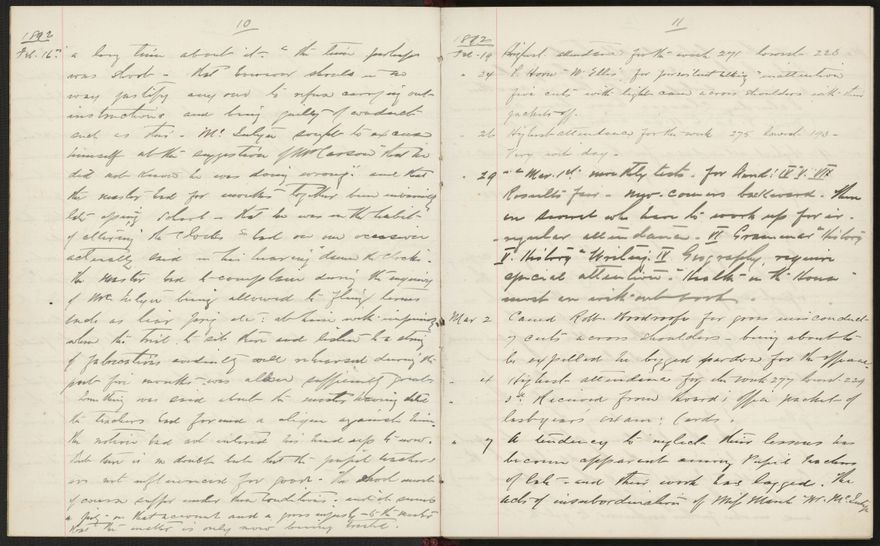 10
1892
Feb. 16th a long time about it. "the time perhaps
was short - that however should in no
way justify any one to refuse carrying out
instructions and being guilty of conduct
such as this - Mr. sought to excuse
himself at the suggestion of Mr Carson "that he
did not know he was doing wrong", and that
the master had for months together been
late opening school - that he was in the habit
of altering the clocks & had on one occasion
actually said in his hearing the clock.
The master had to complain during the inquiry
of Mr. being allowed to fling terms
such as liar prig etc. at him with impunity
when the trial to sit there and listen to a string
of fabrications evidently well rehearsed during the
past few months - was sufficiently great.
Something was said about the master like
the teachers had formed a clique against him
the notion had not entered his head up to now.
But there is no doubt but that the pupil teachers
are not influenced for good. The school must
of course suffer under these conditions, and it seems
a pity on that account and a gross injustice to the master
that the matter is only now being
11
1892
Feb. 19 Highest attendance for the week 271 lowest 226
" 24 & W. Ellis for persistent talking & inattention
five cuts with light cane across shoulders with their
jackets off.
" 26 Highest attendance for the week 275 lowest 198 -
Very wet day -
" 29 " & Mar. 1st. monthly tests - for Stand: IV. V. VII
Results fair - new-comers backward. There
are several who have to work up for ir-
regular attendance - VI Grammar & History
V. History & Writing. IV Geography, require
special attention.
Mar 2 Caned Robt. for gross misconduct
7 cuts across shoulders - being about to
be expelled he begged pardon for the offence.
" 4 Highest attendance for the week 277 lowest 224
" 5th. Received from Board: office packet of
last years exam: Cards.
" 7 A tendency to neglect their lessons has
become apparent among Pupil Teachers
of late - and their work has lagged. The
acts of insubordination of Miss Mr.